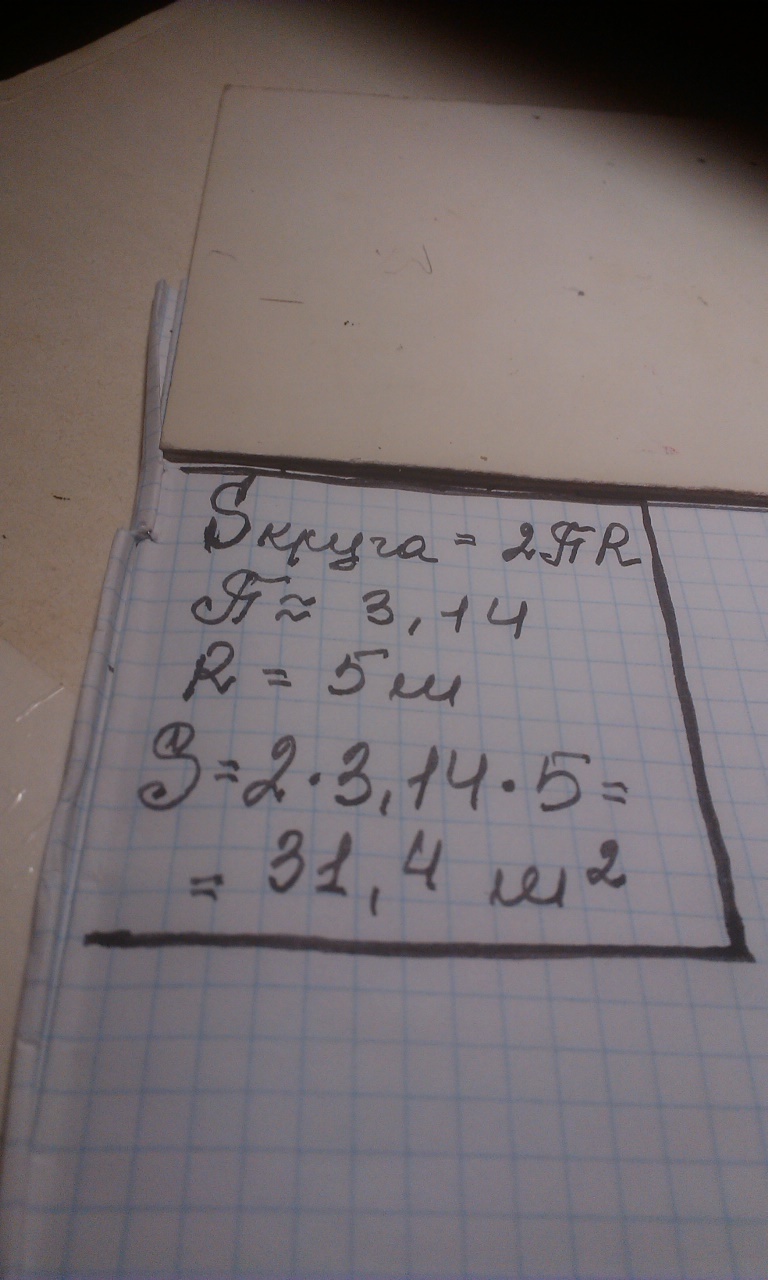 Sкруга = 2πR
π ≈ 3,14
R = 5 м
S = 2 · 3,14 · 5 =
= 31,4 м²